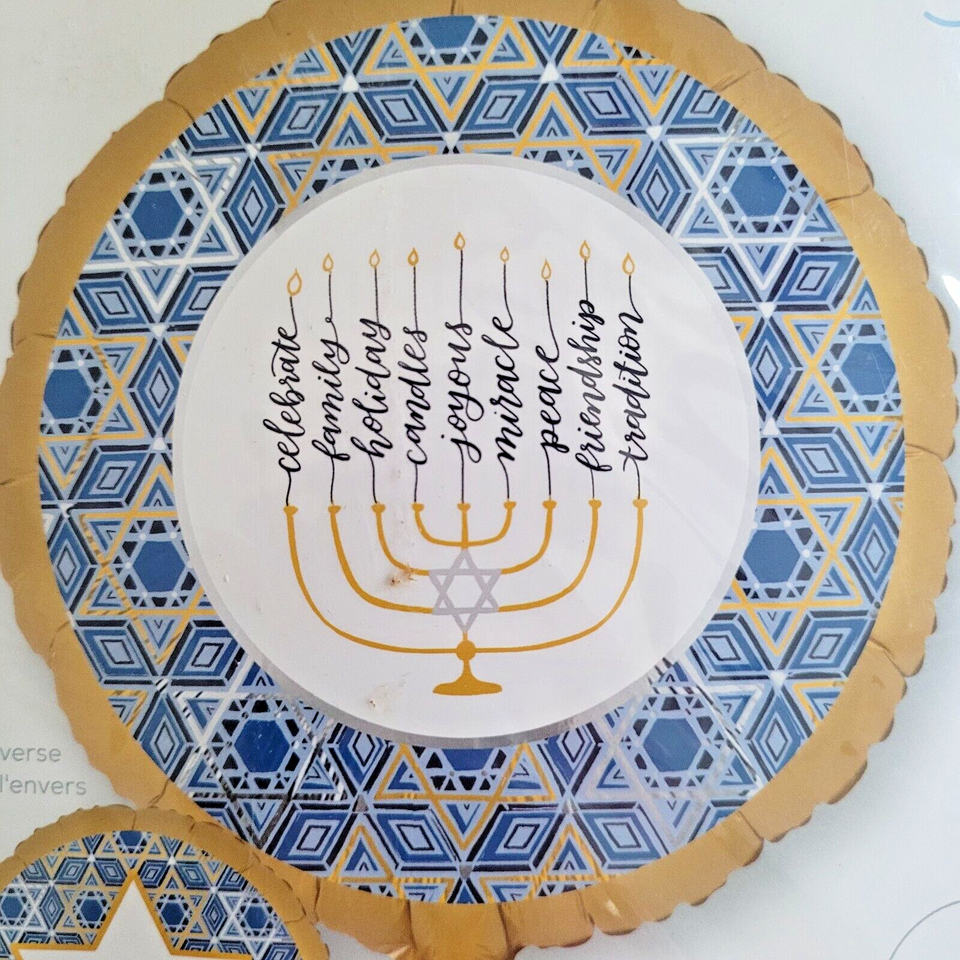 celebrate
family
holiday
candles
joyous
miracle
peace
friendship
tradition
verse
l'envers